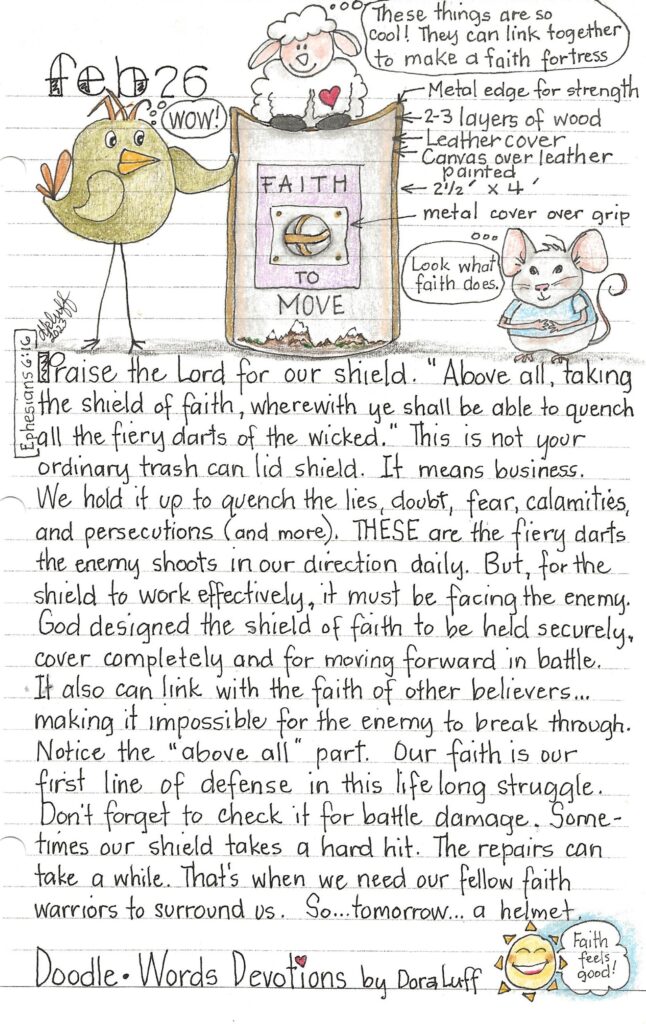 These things are so
cool! They can link together
to make a faith fortress
feb 26
WOW!
Metal edge for strength
2-3 layers of wood
Leather cover
Canvas over leather
painted
2½' x 4'
metal cover over grip
FAITH
TO
MOVE
Look what
faith does.
2023
Ephesians 6:16
Praise the Lord for our shield. "Above all, taking
the shield of faith, wherewith ye shall be able to quench
all the fiery darts of the wicked." This is not your
ordinary trash can lid shield. It means business.
We hold it up to quench the lies, doubt, fear, calamities,
and persecutions (and more). THESE are the fiery darts
the enemy shoots in our direction daily. But, for the
shield to work effectively, it must be facing the enemy.
God designed the shield of faith to be held securely,
cover completely and for moving forward in battle.
It also can link with the faith of other believers...
making it impossible for the enemy to break through.
Notice the "above all" part. Our faith is our
first line of defense in this life long struggle.
Don't forget to check it for battle damage. Some-
times our shield takes a hard hit. The repairs can
take a while. That's when we need our fellow faith
warriors to surround us. So...tomorrow... a helmet.
Doodle • Words Devotions by Dora Luff
Faith
feels
good!